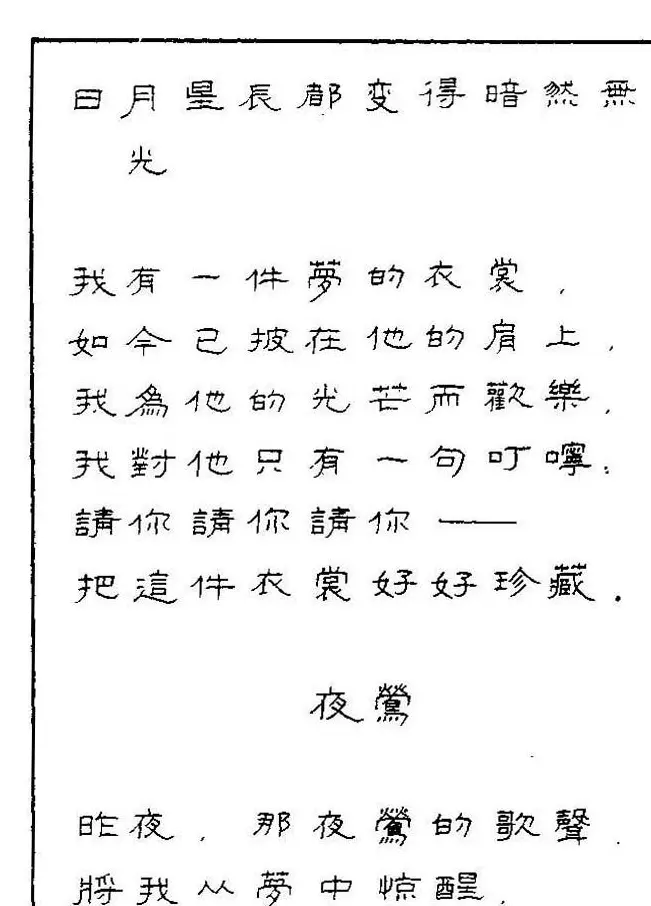 日月星長都变得暗然無
光
我有一件夢的衣裳，
如今已披在他的肩上，
我為他的光芒而歡樂，
我對他只有一句叮嚀：
請你請你請你——
把這件衣裳好好珍藏．
夜鶯
昨夜，那夜鶯的歌聲，
將我从夢中惊醒，